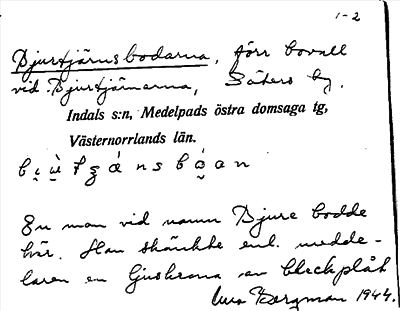 1-2
Djurtjärnsbodarna, förr bovall
vid Djurtjärnarna, Säters by.
Indals s:n, Medelpads östra domsaga tg,
Västernorrlands län.
En man vid namn Djure bodde
här. Han skänkte enl. medde-
laren en ljuskrona av bleckplåt
Bergman 1944.